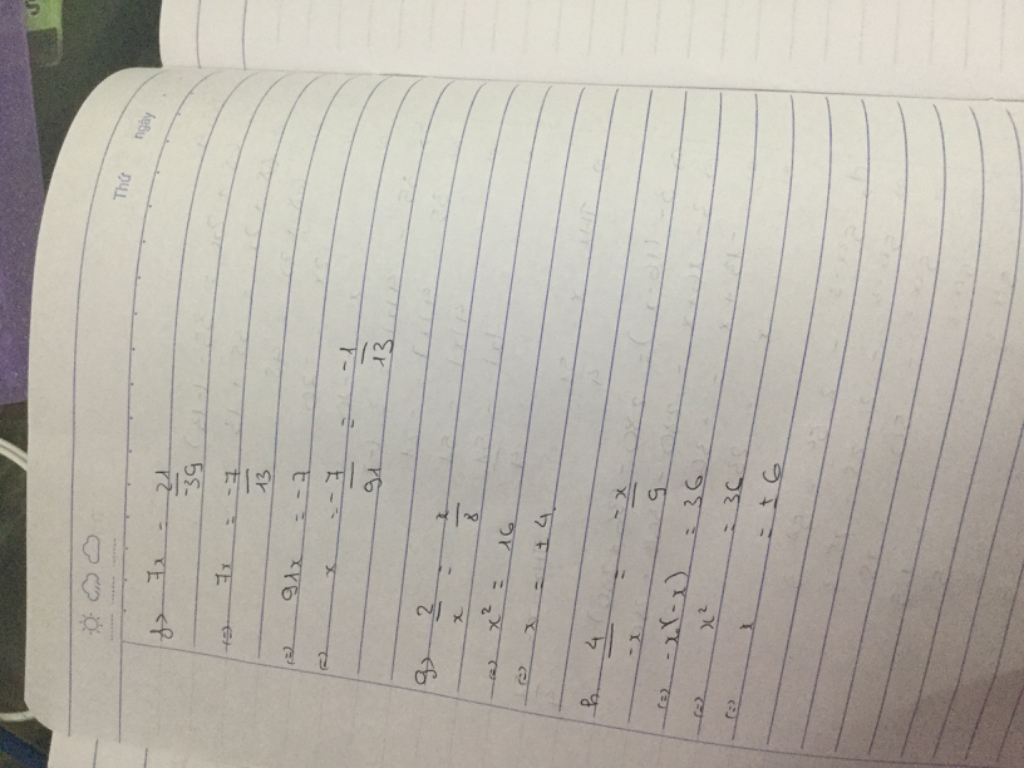 Thứ
ngày
f> 7x = 21/-39
(=) 7x = -7/13
(=) 91x = -7
(=) x = -7/91 = -1/13
g> 2/x = x/8
(=) x² = 16
(=) x = ± 4
h. 4/-x = -x/9
(=) -x(-x) = 36
(=) x² = 36
(=) x = ± 6